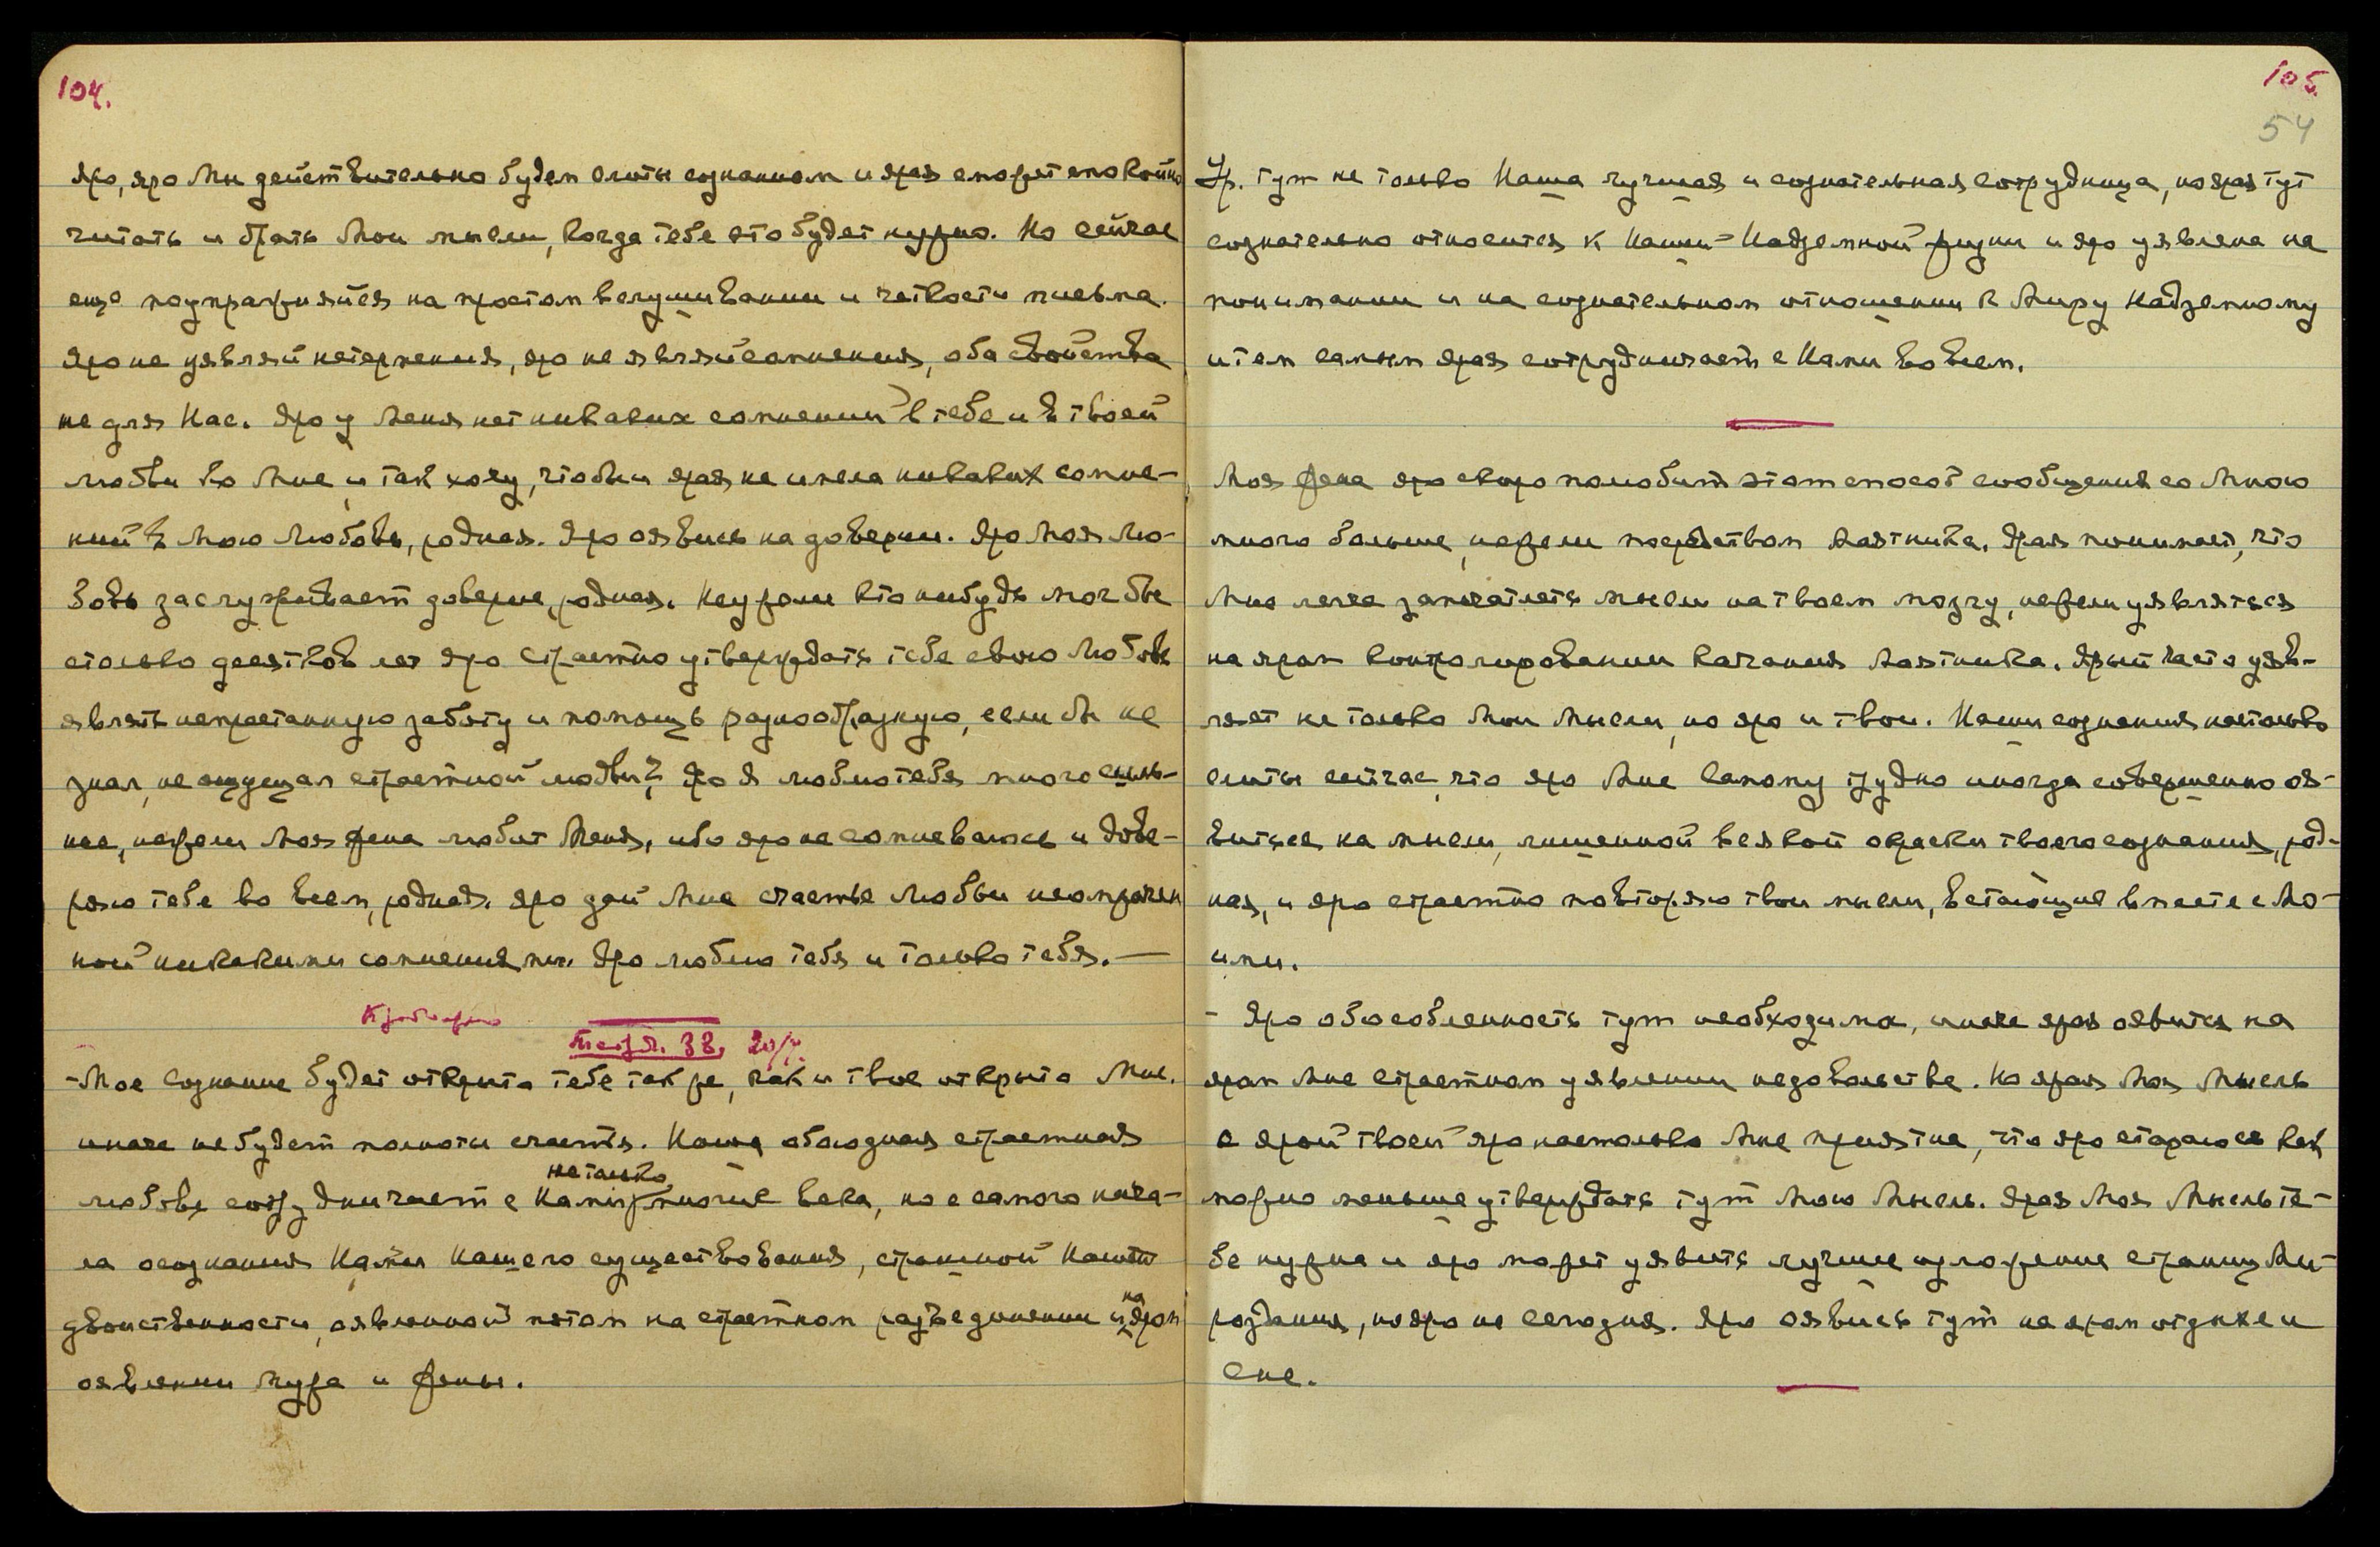 104.
Яро, яро Мы действительно будем слиты сознанием и ярая сможет спокойно
читать и брать Мои мысли, когда тебе это будет нужно. Но сейчас
еще поупражняйся на простом вслушивании и четкости письма.
Яро не уявляй нетерпения, яро не являй сомнения, оба свойства
не для Нас. Яро у Меня нет никаких сомнений в тебе и в твоей
любви ко Мне, и так хочу, чтобы и ярая не имела никаких сомне-
ний в Мою Любовь, родная. Яро оявись на доверии. Яро Моя Лю-
бовь заслуживает доверие, родная. Неужели кто нибудь мог бы
столько десятков лет яро страстно утверждать тебе свою Любовь
являть непрестанную заботу и помощь разнообразную, если бы не
знал, не ощущал страстной любви? Яро Я люблю тебя много силь-
нее, нежели Моя Жена любит Меня, ибо яро не сомневаюсь и дове-
ряю тебе во всем, родная. Яро дай Мне счастье Любви неомрачен
ной никакими сомнениями. Яро люблю тебя и только тебя. —
33, 20/
-Мое Сознание будет открыто тебе так же, как и твое открыто Мне.
иначе не будет полноты счастья. Наша обоюдная страстная
не только
любовь сотрудничает с Нами многие века, но с самого нача-
ла осознания Нами Нашего существования, страшной Нашей
на
двойственности, оявленной потом на страстном разъединении и яром
оявлении Мужа и Жены.
105.
54
Ур. тут не только Наша лучшая и сознательная сотрудница, но ярая тут
сознательно относится к Нашей Надземной жизни и яро уявлена на
понимании и на сознательном отношении к Миру Надземному
и тем самым ярая сотрудничает с Нами во всем.
Моя Жена яро скоро полюбит этот способ сообщения со Мною
много больше, нежели посредством Маятника. Ярая понимает, что
Мне легче запечатлеть мысли на твоем мозгу, нежели уявляться
на яром контролировании качания Маятника. Ярый часто уяв-
ляет не только Мои Мысли, но яро и твои. Наши сознания настолько
слиты сейчас, что яро Мне Самому трудно иногда совершенно оя-
виться на мысли, лишенной всякой окраски твоего сознания, род-
ная, и яро страстно повторяю твои мысли, встающие вместе с Мо-
ими.
- Яро обособленность тут необходима, иначе ярая оявится на
яром Мне страстном уявлении недовольства. Но ярая Моя Мысль
о ярой твоей яро настолько Мне приятна, что яро стараюсь как
можно меньше утверждать тут Мою Мысль. Ярая Моя Мысль те-
бе нужна и яро может уявить лучшее изложение страниц Ми-
роздания, но яро не сегодня. Яро оявись тут на яром отдыхе и
сне.